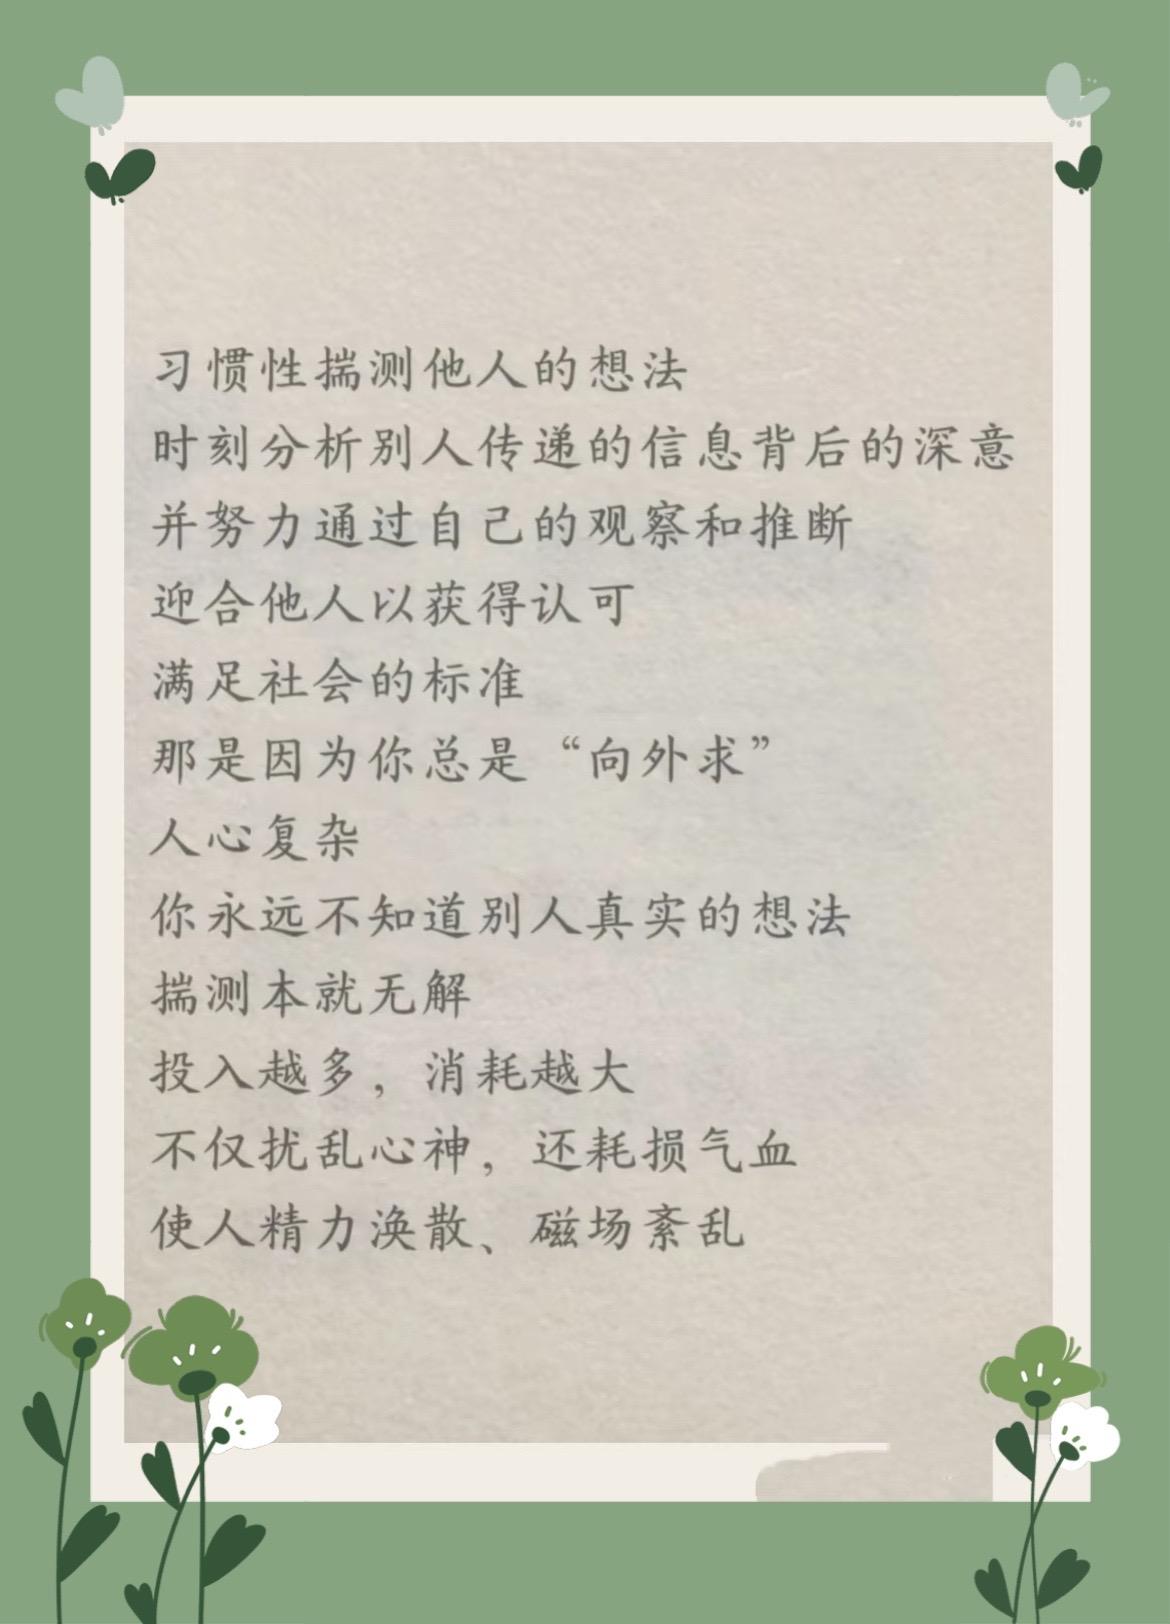 习惯性揣测他人的想法
时刻分析别人传递的信息背后的深意
并努力通过自己的观察和推断
迎合他人以获得认可
满足社会的标准
那是因为你总是“向外求”
人心复杂
你永远不知道别人真实的想法
揣测本就无解
投入越多，消耗越大
不仅扰乱心神，还耗损气血
使人精力涣散、磁场紊乱